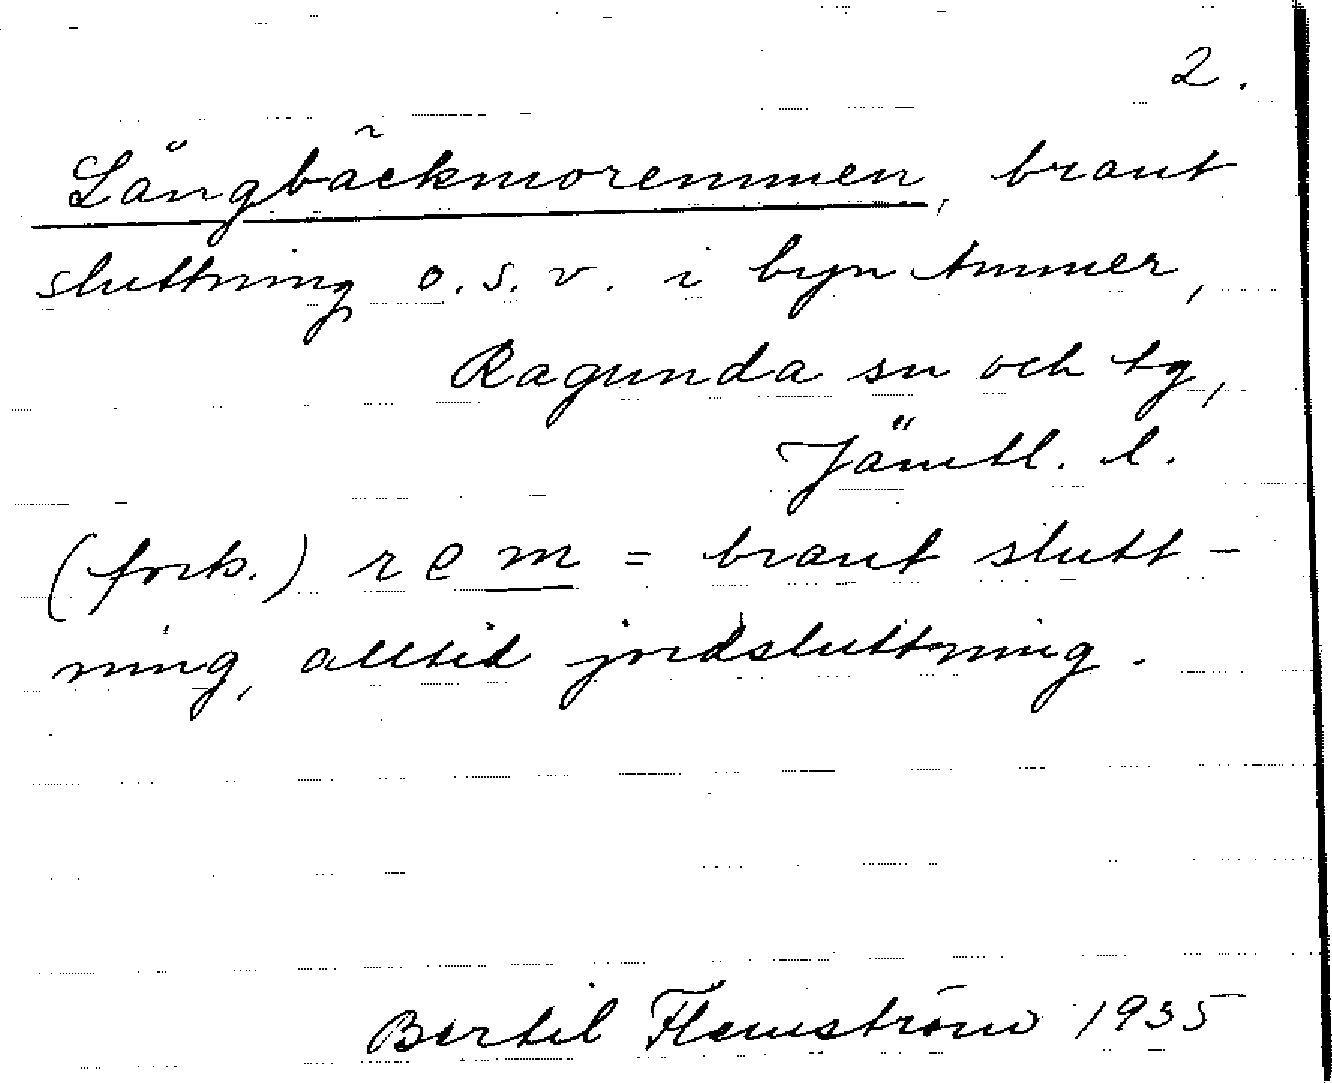 2.
Långbäckmoremmen, brant
sluttning o.s.v. i byn Ammer,
Ragunda sn och tg,
Jämtl. l.
(fork.) rem = brant slutt-
ning, alltid jordsluttning.
Bertil Flemström 1935